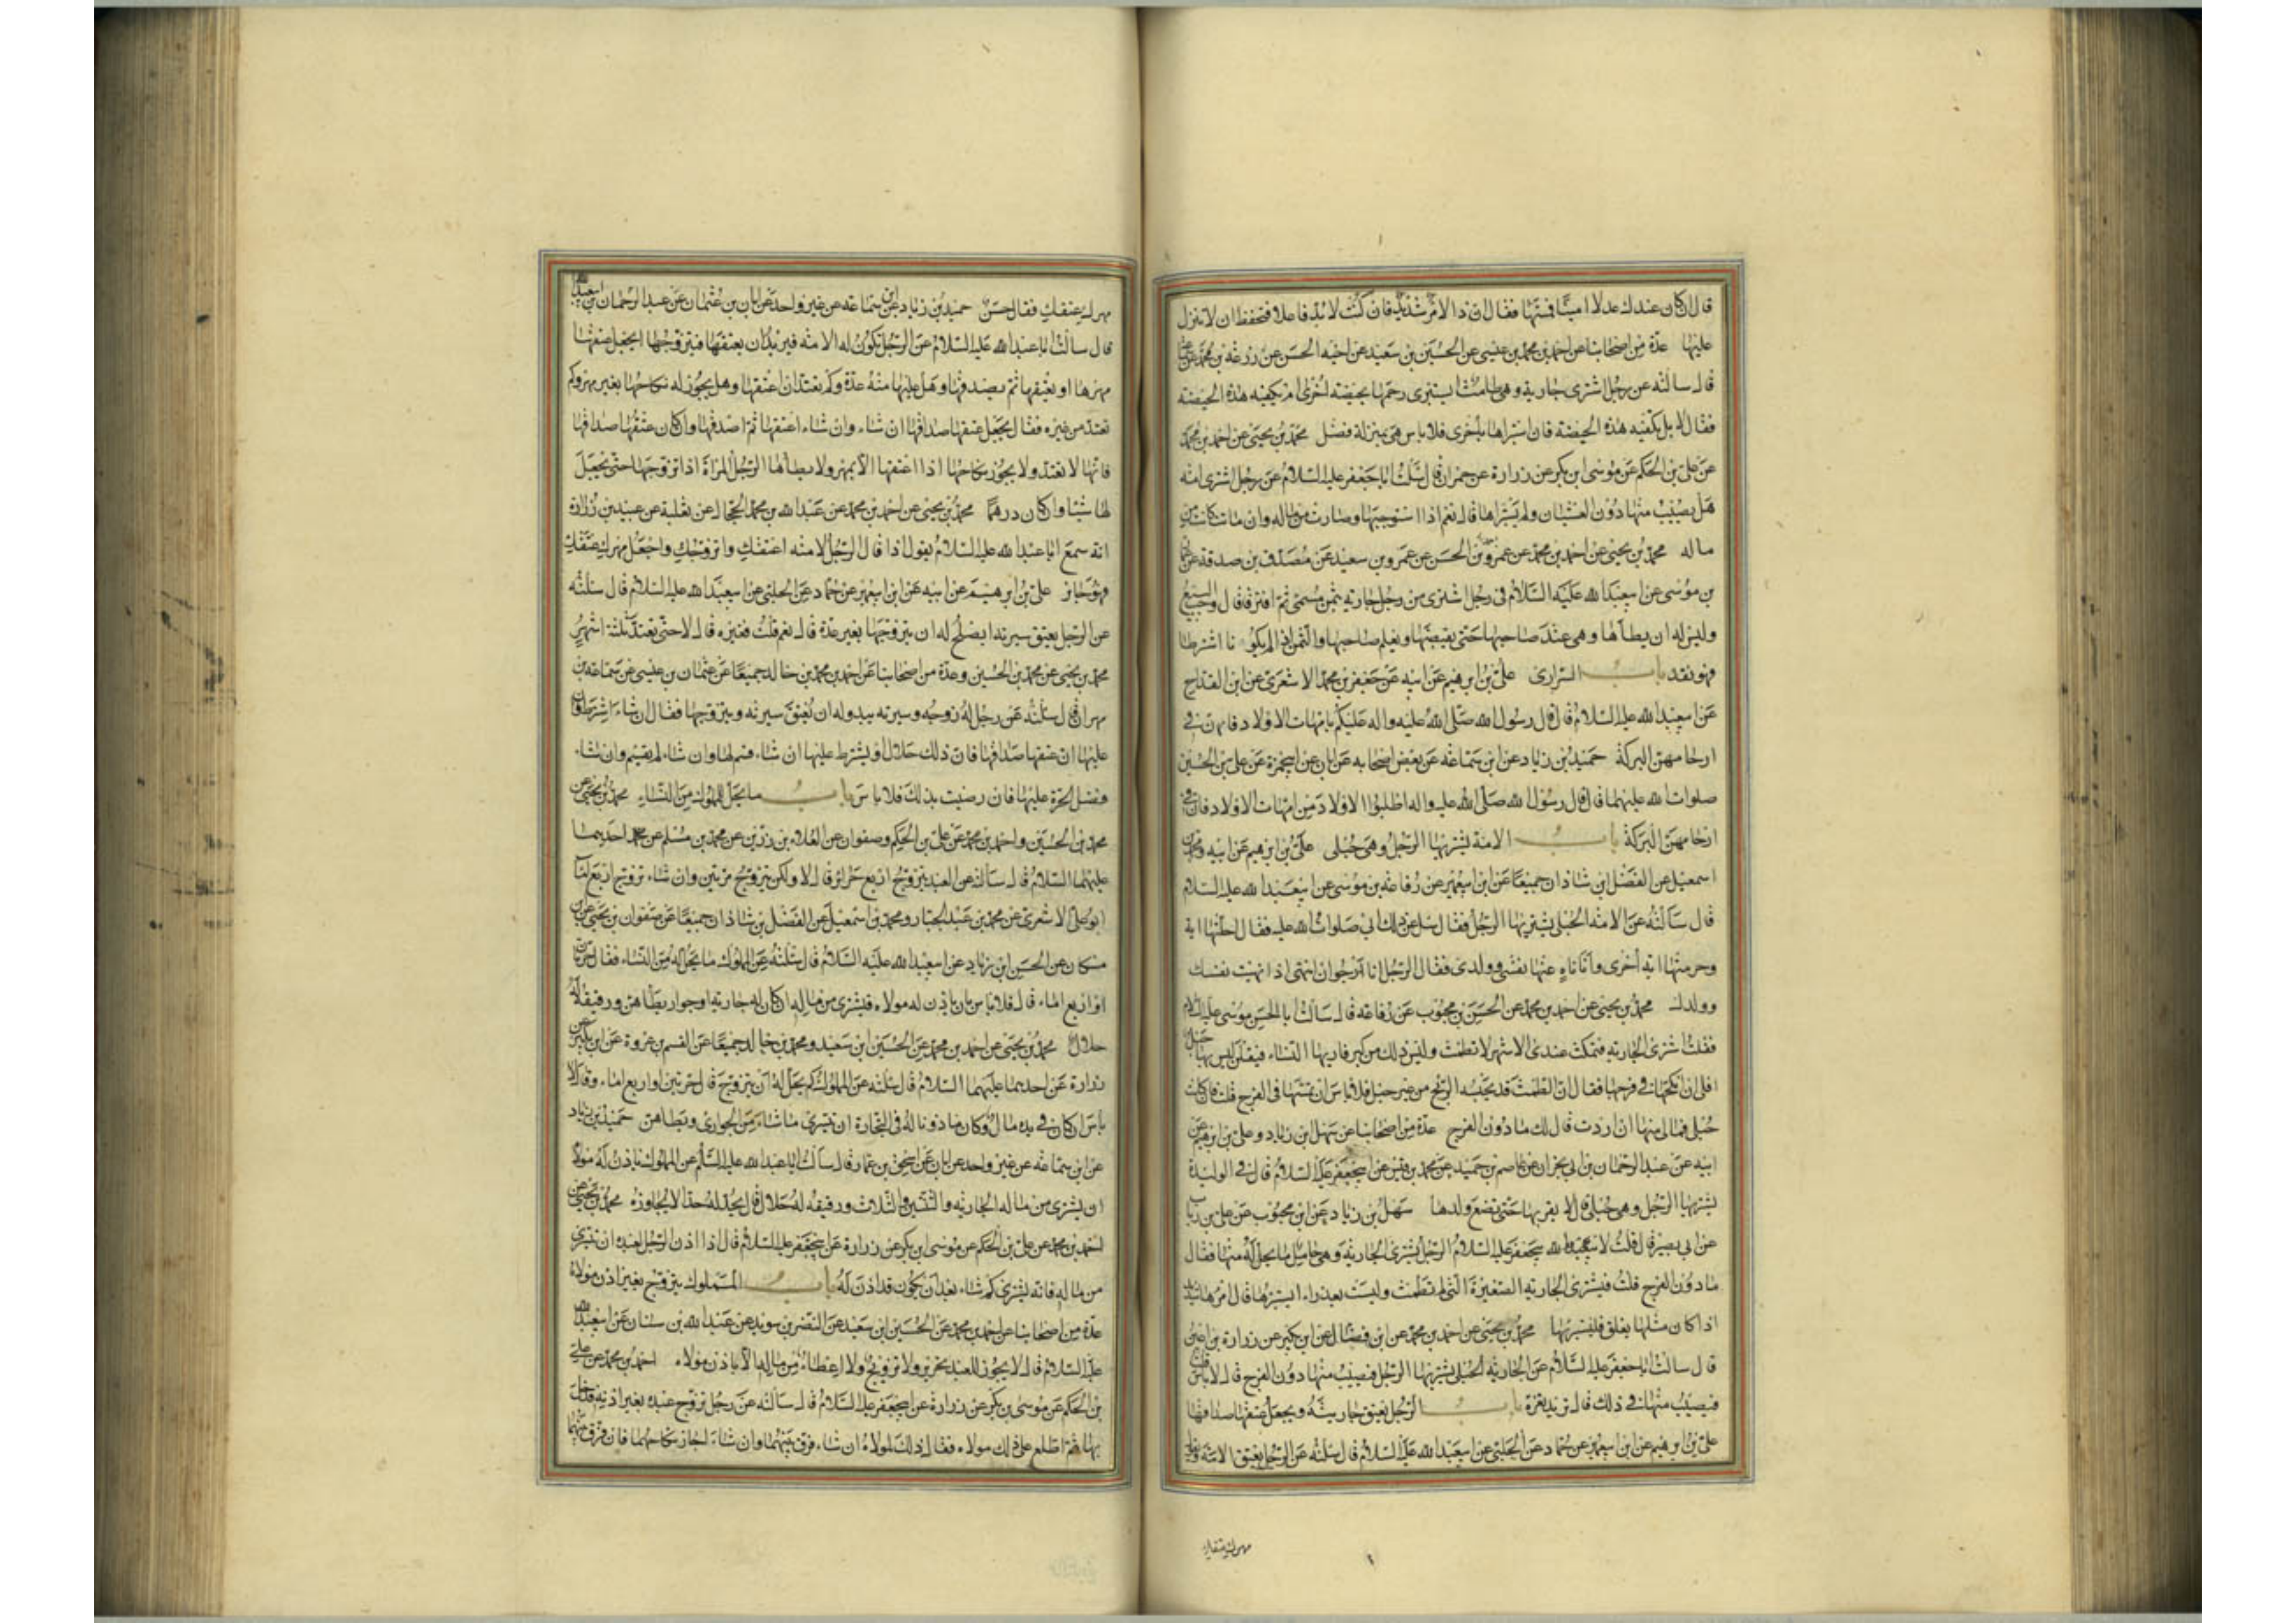 قال ان كان عندك عدلا امينا فمسها فقال ان ذا الامر شديد فان كنت لا بد فاعلا فتحفظ ان لا تنزل
عليها عدة من اصحابنا عن احمد بن محمد بن عيسى عن الحسين بن سعيد عن اخيه الحسن عن زرعة بن محمد عن
قال سالته عن رجل اشترى جارية وهى طامث ايستبرى رحمها بحيضة اخرى ام تكفيه هذه الحيضة
فقال لا بل تكفيه هذه الحيضة فان استبراها باخرى فلا باس هى بمنزلة فضل محمد بن يحيى عن احمد بن محمد
عن على بن الحكم عن موسى ابن بكر عن زرارة عن حمران قال سئلت ابا جعفر عليه السلام عن رجل اشترى امة
هل يصيب منها دون الغشيان ولم يستبراها قال نعم اذا استوجبها وصارت من ماله وان ماتت كانت من
ماله محمد بن يحيى عن احمد بن محمد عن عمرو بن الحسن عن عمرو بن سعيد عن مصدق بن صدقة عن
بن موسى عن ابيعبد الله عليه السلام فى رجل اشترى من رجل جارية بثمن مسمى ثم افترقا قال وجب البيع
وليس له ان يطأها وهى عند صاحبها حتى يقبضها ويعلم صاحبها والثمن اذا لم يكونا اشترطا
فهو نقد باب السرارى على بن ابرهيم عن ابيه عن جعفر بن محمد الاشعرى عن ابن القداح
عن ابيعبد الله عليه السلام قال قال رسول الله صلى الله عليه واله عليكم بامهات الاولاد فان فى
ارحامهن البركة حميد بن زياد عن ابن سماعة عن بعض اصحابه عن ابان عن ابيحمزة عن على بن الحسين
صلوات الله عليهما قال قال رسول الله صلى الله عليه واله اطلبوا الاولاد من امهات الاولاد فان فى
ارحامهن البركة باب الامة يشتريها الرجل وهى حبلى على بن ابرهيم عن ابيه ومحمد بن
اسمعيل عن الفضل ابن شاذان جميعا عن ابن ابيعمير عن رفاعة بن موسى عن ابيعبد الله عليه السلام
قال سألته عن الامة الحبلى يشتريها الرجل فقال سئل عن ذلك ابى صلوات الله عليه فقال احلتها اية
وحرمتها اية اخرى وانا ناه عنها نفسى وولدى فقال الرجل انا ارجو ان انتهى اذا نهيت نفسك
وولدك محمد بن يحيى عن احمد بن محمد عن الحسن بن محبوب عن رفاعة قال سالت ابا الحسن موسى عليه السلام
فقلت اشترى الجارية فتمكث عندى الاشهر لا تطمث وليس ذلك من كبر فاريها النساء فيقلن ليس بها حبل
افلى ان انكحها فى فرجها فقال ان الطمث قد يحبسه الريح من غير حبل فلا باس ان تمسها فى الفرج قلت فان كانت
حبلى فمالى منها ان اردت قال لك ما دون الفرج عدة من اصحابنا عن سهل ابن زياد وعلى بن ابرهيم عن
ابيه عن عبد الرحمان بن ابى نجران عن عاصم بن حميد عن محمد بن قيس عن ابيجعفر عليه السلام قال فى الوليدة
يشتريها الرجل وهى حبلى قال لا يقربها حتى تضع ولدها سهل بن زياد عن ابن محبوب عن على بن رئاب
عن ابى بصير قال قلت لابيجعفر عليه السلام الرجل يشترى الجارية وهى حامل ما يحل له منها فقال
ما دون الفرج قلت فيشترى الجارية الصغيرة التى لم تطمث وليست بعذراء ايستبرئها قال امرها شديد
اذا كان مثلها يعلق فليستبرئها محمد بن يحيى عن احمد بن محمد عن ابن فضال عن ابن بكير عن زرارة بن اعين
قال سالت ابا جعفر عليه السلام عن الجارية الحبلى يشتريها الرجل فيصيب منها دون الفرج قال لا باس قلت
فيصيب منها فى ذلك قال تريد تغرة باب الرجل يعتق جاريته ويجعل عتقها صداقها
على بن ابرهيم عن ابن ابيعمير عن حماد عن الحلبى عن ابيعبد الله عليه السلام قال سئلته عن الرجل يعتق الامة ويقول
مهرك عتقك
مهرك عتقك فقال حسن حميد بن زياد عن ابن سماعة عن غير واحد عن ابان بن عثمان عن عبد الرحمان بن ابيعبد الله
قال سالت ابا عبد الله عليه السلام عن الرجل تكون له الامة فيريد ان يعتقها فيتزوجها ايجعل عتقها
مهرها او يعتقها ثم يصدقها وهل عليها منه عدة وكم تعتد ان اعتقها وهل يجوز له نكاحها بغير مهر وكم
تعتد من غيره فقال يجعل عتقها صداقها ان شاء وان شاء اعتقها ثم اصدقها وان كان عتقها صداقها
فانها لا تعتد ولا يجوز نكاحها اذا اعتقها الا بمهر ولا يطأها الرجل المراة اذا تزوجها حتى يجعل
لها شيئا وان كان درهما محمد بن يحيى عن احمد بن محمد عن عبد الله بن محمد الحجال عن ثعلبة عن عبيد بن زرارة
انه سمع ابا عبد الله عليه السلام يقول اذا قال الرجل لامته اعتقك واتزوجك واجعل مهرك عتقك
فهو جايز على بن ابرهيم عن ابيه عن ابن ابيعمير عن حماد عن الحلبى عن ابيعبد الله عليه السلام قال سئلته
عن الرجل يعتق سريته ايصلح له ان يتزوجها بغير عدة قال نعم قلت فغيره قال لا حتى تعتد ثلثة اشهر
محمد بن يحيى عن محمد بن الحسين وعدة من اصحابنا عن احمد بن محمد بن خالد جميعا عن عثمان بن عيسى عن سماعة بن
مهران قال سئلته عن رجل له زوجة وسرية يبدو له ان يعتق سريته ويتزوجها فقال ان شاء اشترط
عليها ان عتقها صداقها فان ذلك حلال او يشترط عليها ان شاء قسم لها وان شاء لم يقسم وان شاء
فضل الحرة عليها فان رضيت بذلك فلا باس باب ما يحل للمملوك من النساء محمد بن يحيى عن
محمد بن الحسين واحمد بن محمد عن على بن الحكم وصفوان عن العلاء بن رزين عن محمد بن مسلم عن احديهما
عليهما السلام قال سألته عن العبد يتزوج اربع حرائر قال لا ولكن يتزوج حرتين وان شاء تزوج اربع اماء
ابو على الاشعرى عن محمد بن عبد الجبار ومحمد بن اسمعيل عن الفضل بن شاذان جميعا عن صفوان بن يحيى عن ابن
مسكان عن الحسن ابن زياد عن ابيعبد الله عليه السلام قال سئلته عن المملوك ما يحل له من النساء فقال حرتان
او اربع اماء قال فلا باس بان ياذن له مولاه فيشترى من ماله ان كان له جارية او جوار يطأهن ورقيقه له
حلال محمد بن يحيى عن احمد بن محمد عن الحسين ابن سعيد ومحمد بن خالد جميعا عن القسم بن عروة عن ابن بكير عن
زرارة عن احديهما عليهما السلام قال سئلته عن المملوك كم يحل له ان يتزوج قال حرتين او اربع اماء وقال لا
باس ان كان فى يده مال وكان ماذونا له فى التجارة ان يتسرى ما شاء من الجوارى ويطاهن حميد بن زياد
عن ابن سماعة عن غير واحد عن ابان عن اسحق بن عمار قال سألت ابا عبد الله عليه السلام عن المملوك ياذن له مولاه
ان يشترى من ماله الجارية والثنتين والثلاث ورقيقه له حلال قال يحد له حدا لا يجاوزه محمد بن يحيى عن
احمد بن محمد عن على بن الحكم عن موسى ابن بكر عن زرارة عن ابيجعفر عليه السلام قال اذا اذن الرجل لعبده ان يتسرى
من ماله فانه يشترى كم شاء بعد ان يكون قد اذن له باب المملوك يتزوج بغير اذن مولاه
عدة من اصحابنا عن احمد بن محمد عن الحسين ابن سعيد عن النضر بن سويد عن عبد الله بن سنان عن ابيعبد الله
عليه السلام قال لا يجوز للعبد تحرير ولا تزويج ولا اعطاء من ماله الا باذن مولاه احمد بن محمد عن على
بن الحكم عن موسى بن بكر عن زرارة عن ابيجعفر عليه السلام قال سألته عن رجل تزوج عبده بغير اذنه فدخل
بها ثم اطلع على ذلك مولاه فقال ذلك لمولاه ان شاء فرق بينهما وان شاء اجاز نكاحهما فان فرق بينهما